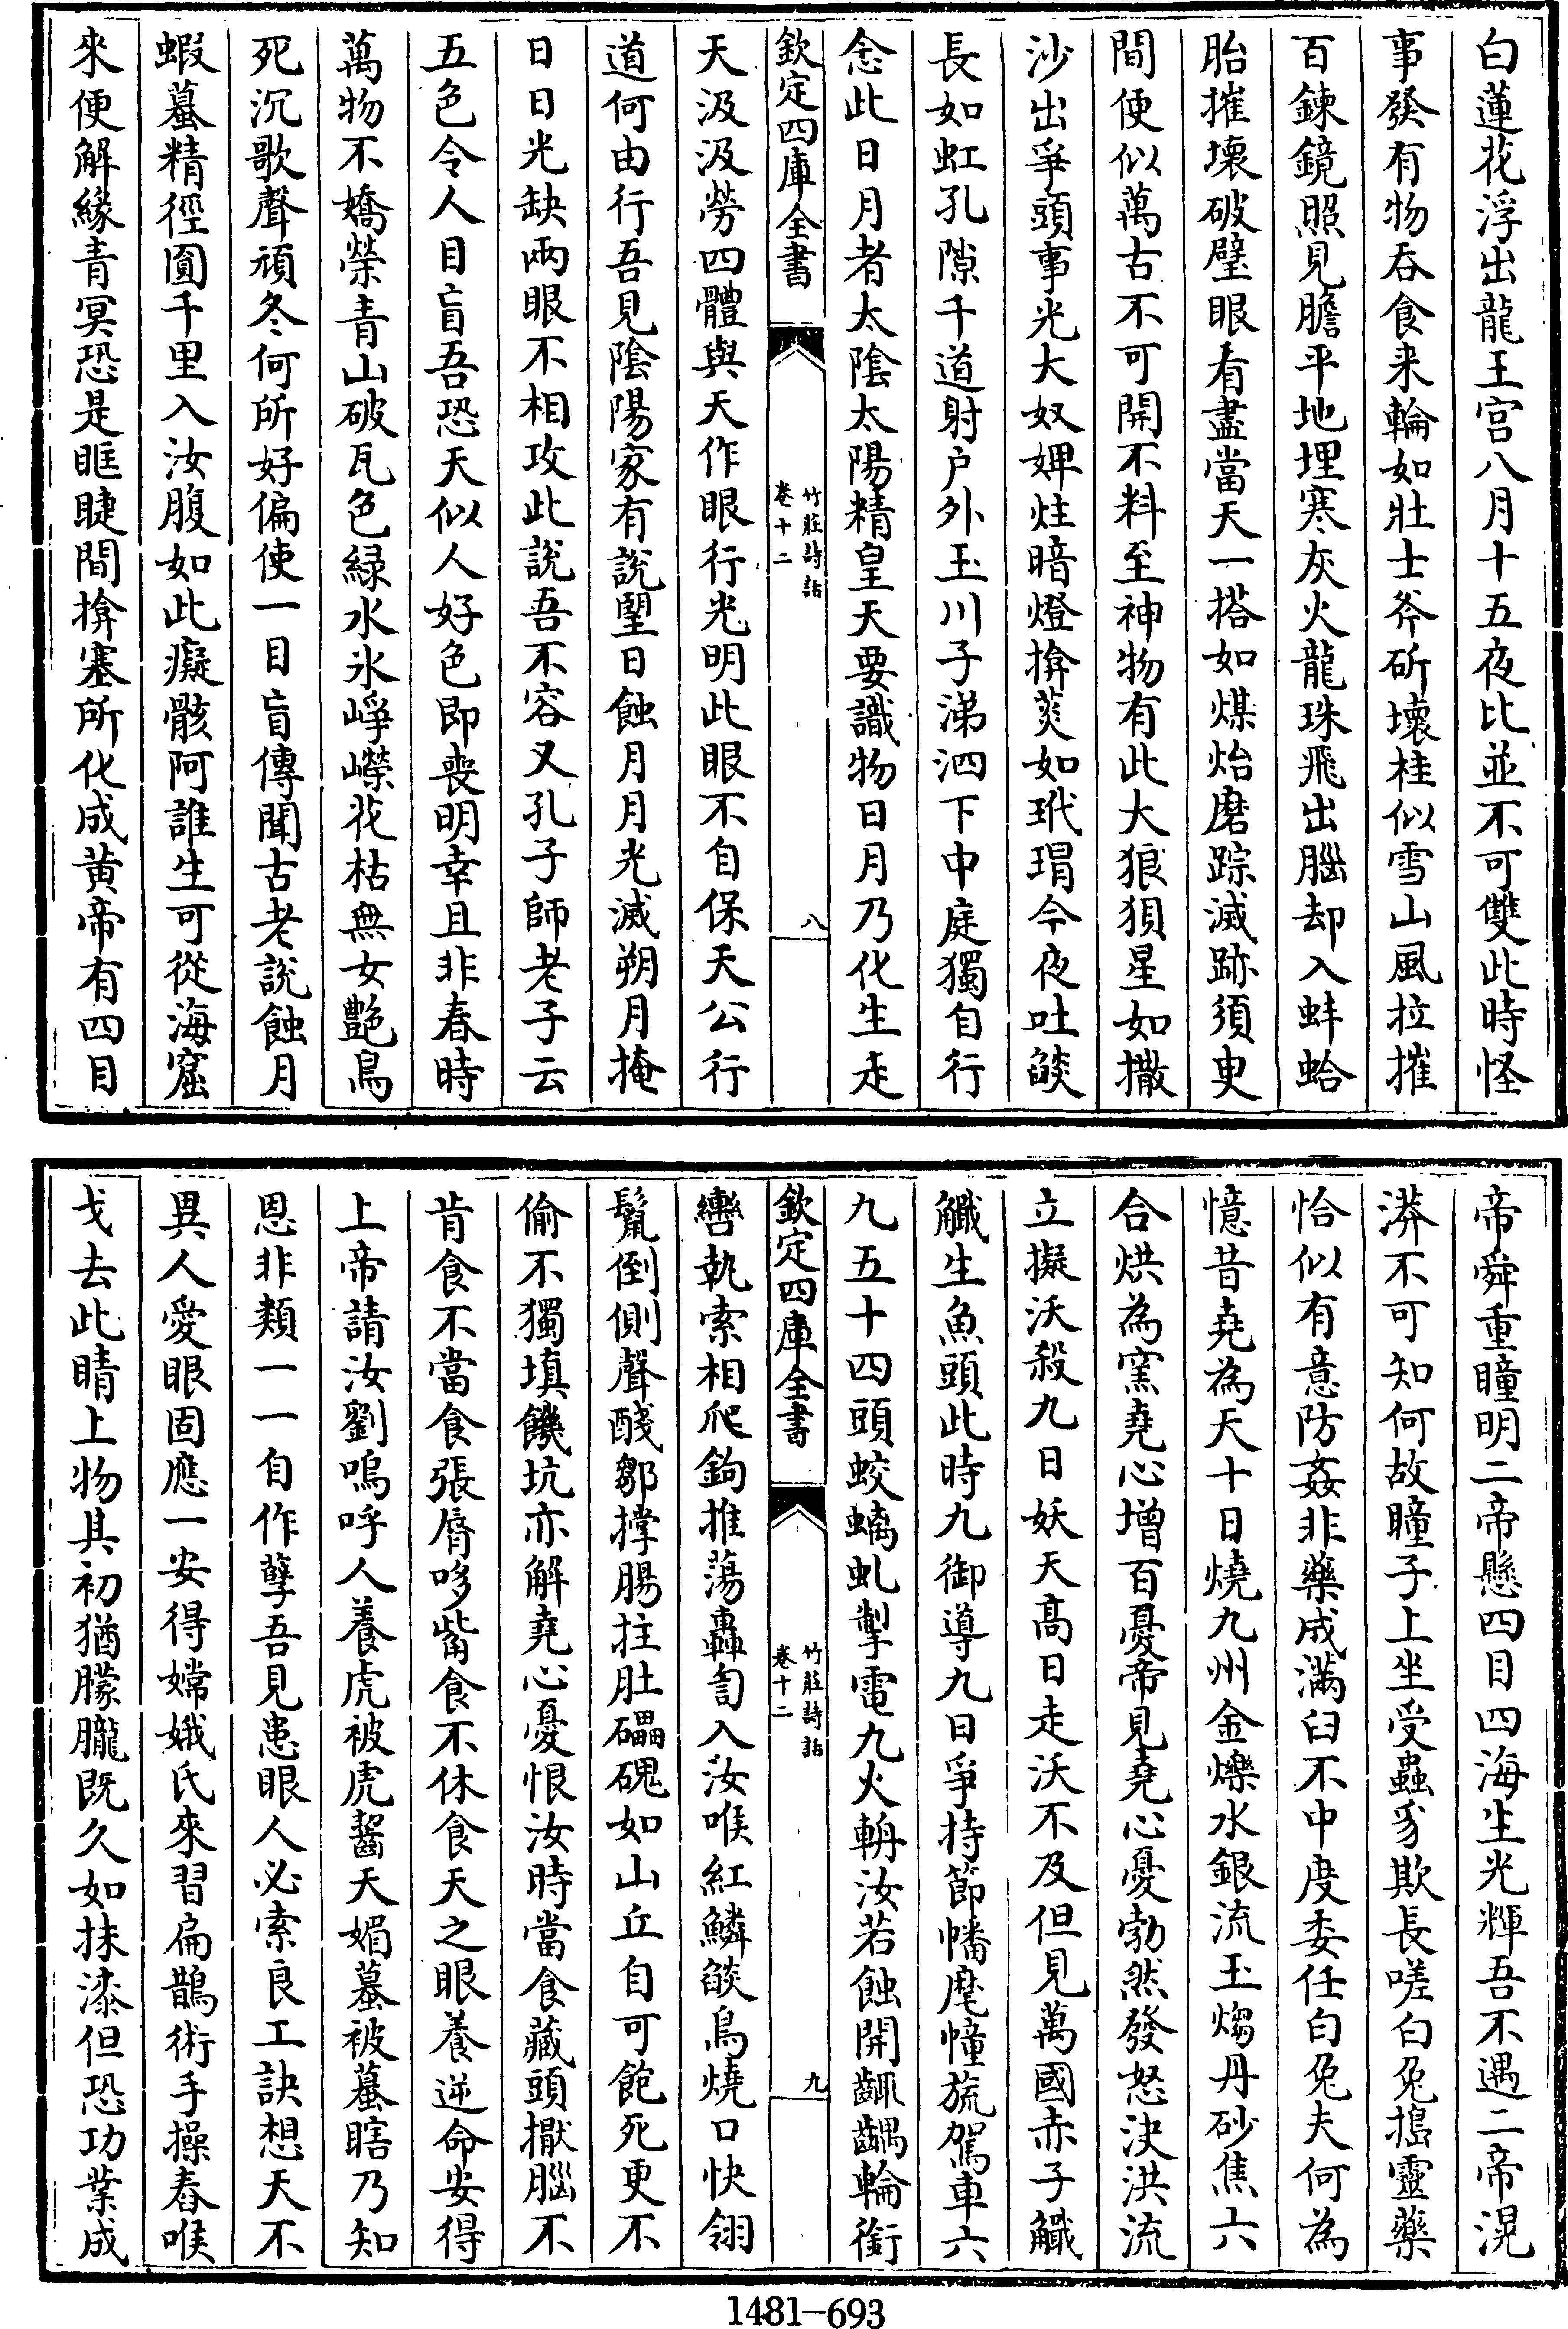 白蓮花浮出龍王宫八月十五夜比並不可雙此時怪
事發有物吞食来輪如壯士斧斫壞桂似雪山風拉摧
百鍊鏡照見膽平地埋寒灰火龍珠飛出腦却入蚌蛤
胎摧壞破璧眼看盡當天一搭如煤炲磨踪滅跡須㬰
間便似萬古不可開不料至神物有此大狼狽星如撒
沙出爭頭事光大奴婢炷暗燈揜菼如玳瑁今夜吐燄
長如虹孔隙千道射户外玉川子涕泗下中庭獨自行
念此日月者太隂太陽精皇天要識物日月乃化生走
欽定四庫全書
竹莊詩話
卷十二
八
天汲汲勞四體與天作眼行光明此眼不自保天公行
道何由行吾見隂陽家有說朢日蝕月月光滅朔月掩
日日光缺兩眼不相攻此說吾不容又孔子師老子云
五色令人目盲吾恐天似人好色即喪明幸且非春時
萬物不嬌榮青山破瓦色緑水氷崢嶸花枯無女艷鳥
死沉歌聲頑冬何所好偏使一目盲傳聞古老說蝕月
蝦蟇精徑圓千里入汝腹如此癡骸阿誰生可從海窟
來便解緣青冥恐是眶睫間揜塞所化成黄帝有四目
帝舜重瞳明二帝懸四目四海生光輝吾不遇二帝滉
漭不可知何故瞳子上坐受蟲豸欺長嗟白兔搗靈藥
恰似有意防姦非藥成滿臼不中度委任白兔夫何為
憶昔堯為天十日燒九州金爍水銀流玉煼丹砂焦六
合烘為窯堯心增百憂帝見堯心憂勃然發怒決洪流
立擬沃殺九日妖天髙日走沃不及但見萬國赤子䲅
䲅生魚頭此時九御導九日爭持節幡麾幢旒駕車六
九五十四頭蛟螭虬掣電九火輈汝若蝕開齱齵輪銜
欽定四庫全書
竹莊詩話
卷十二
九
轡執索相爬鉤推蕩轟訇入汝喉紅鱗燄鳥燒口快翎
鬛倒側聲醆鄒撑腸拄肚礧磈如山丘自可飽死更不
偷不獨填饑坑亦解堯心憂恨汝時當食藏頭擫腦不
肯食不當食張脣哆觜食不休食天之眼養逆命安得
上帝請汝劉嗚呼人養虎被虎齧天媚蟇被蟇瞎乃知
恩非類一一自作孽吾見患眼人必索良工訣想天不
異人愛眼固應一安得嫦娥氏來習扁鵲術手操舂喉
戈去此睛上物其初猶朦朧既久如抹漆但恐功業成
1481-693